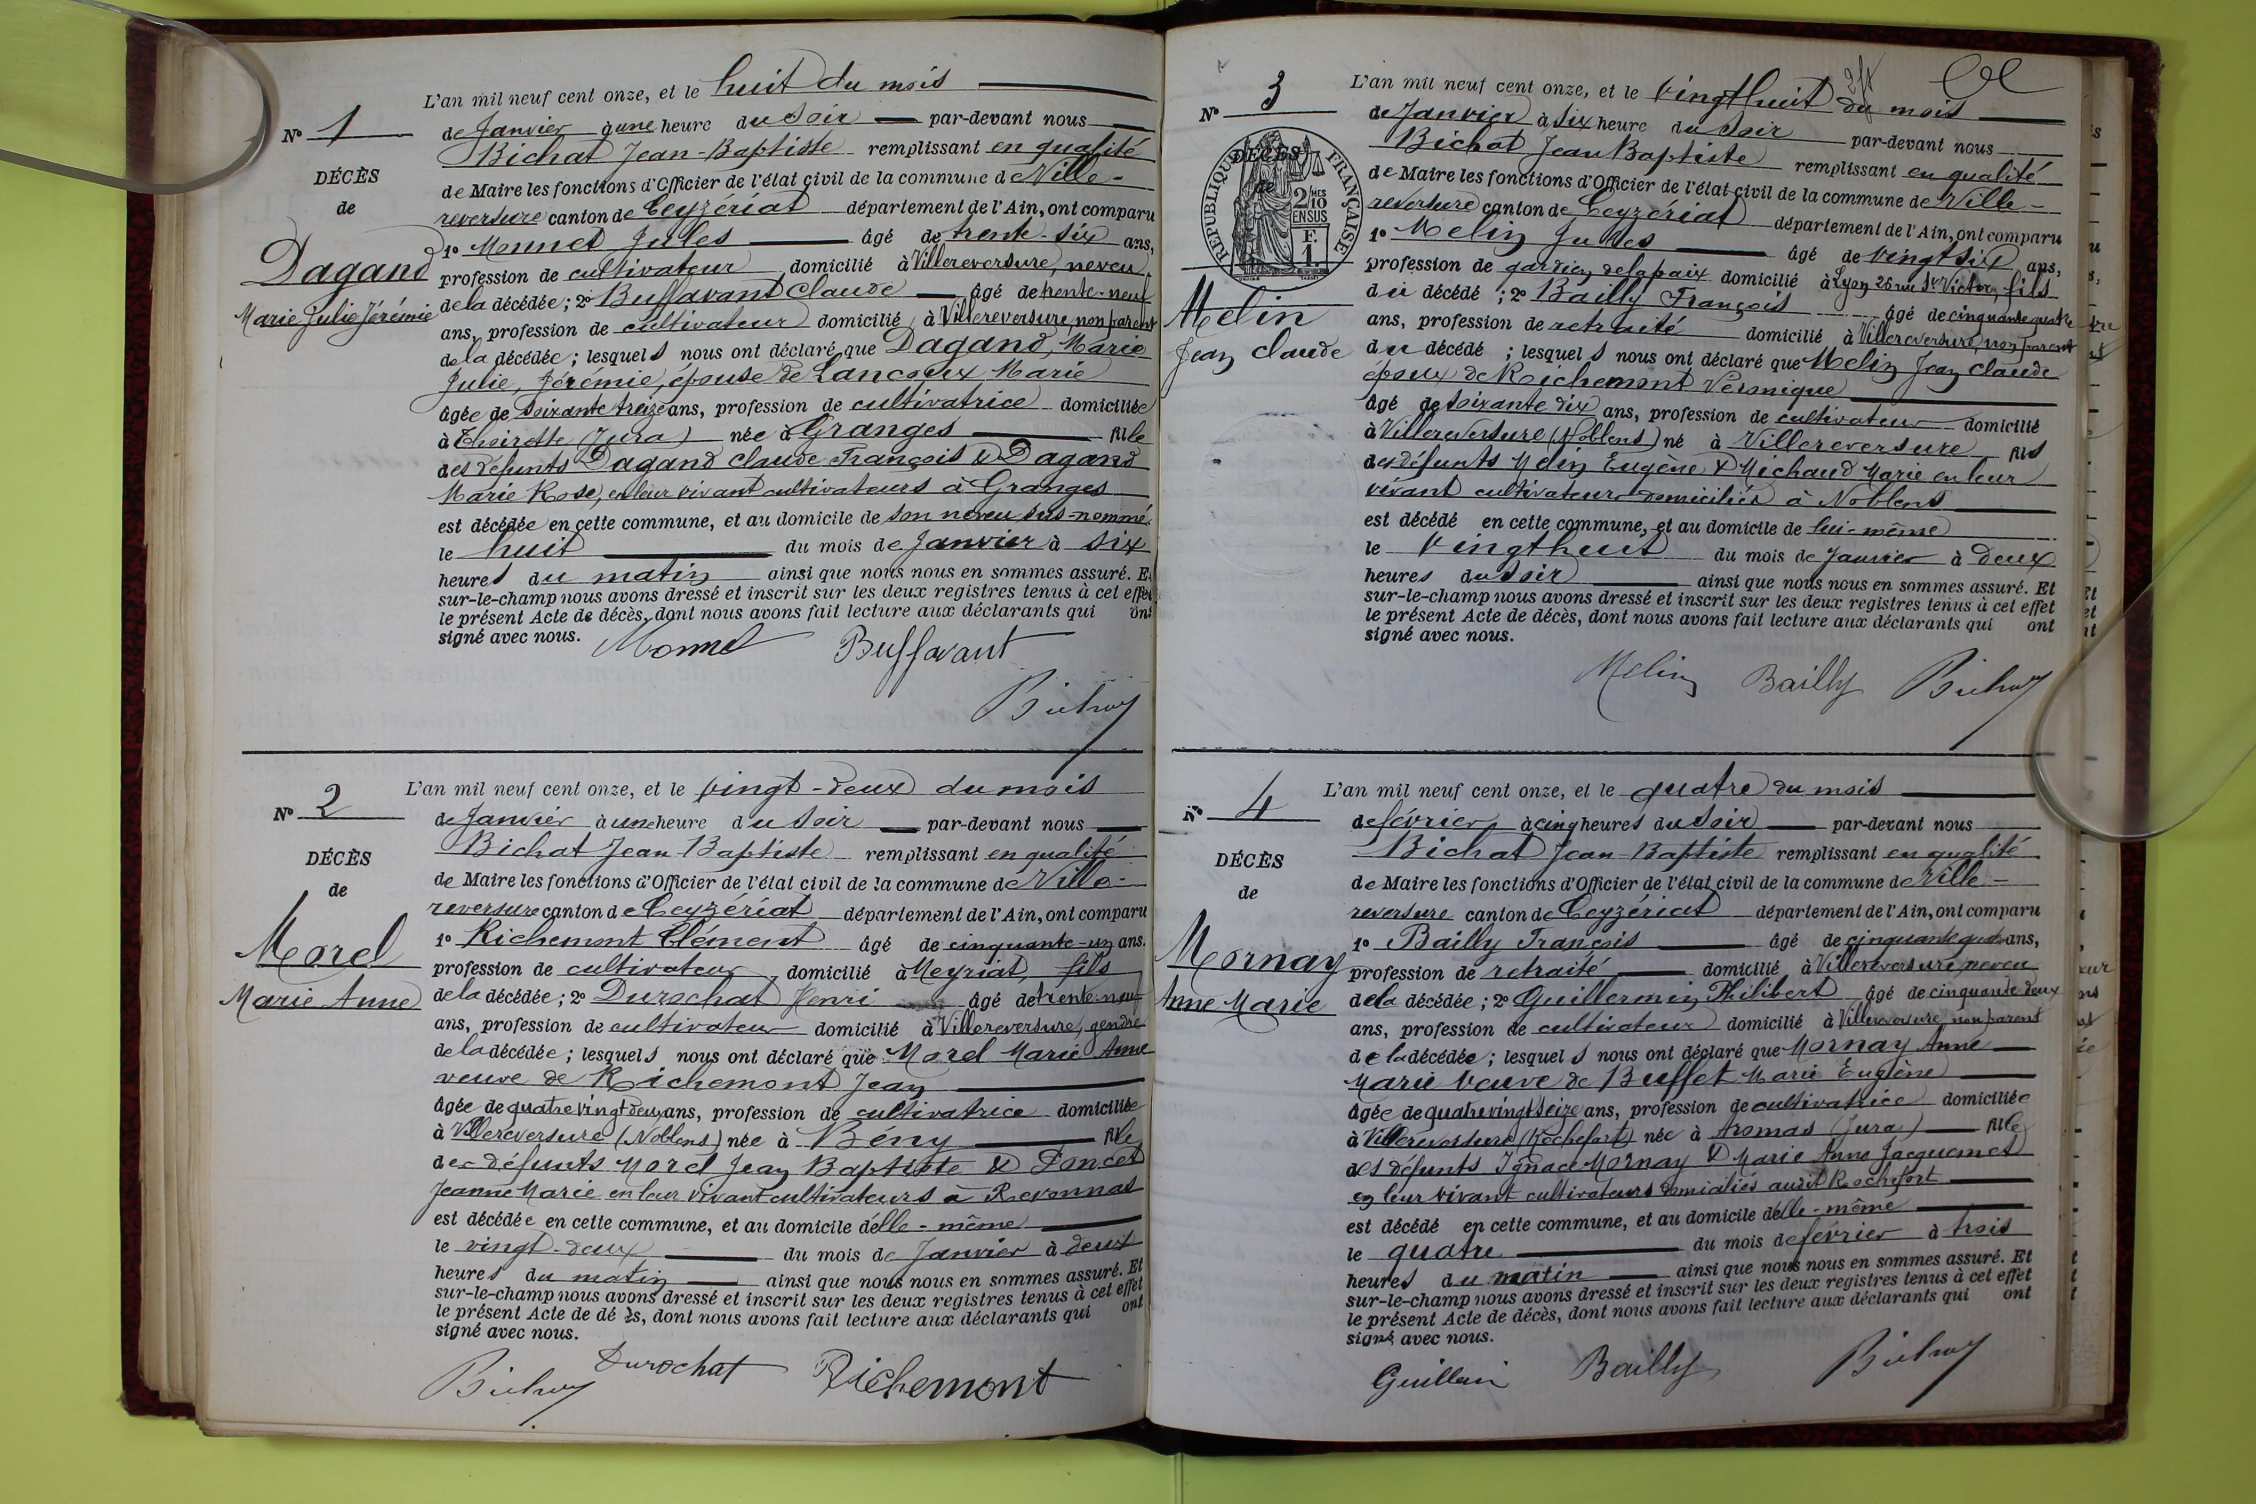 L'an mil neuf cent onze, et le huit du mois
N° 1
de Janvier à une heure du Soir par-devant nous
Bichat Jean-Baptiste remplissant en qualité
DÉCÈS
de
de Maire les fonctions d'Officier de l'état civil de la commune de Ville-
reversure canton de Ceyzériat département de l'Ain, ont comparu
Dagand
Marie Julie Jérémie
1° Monnet Jules âgé de trente-six ans,
profession de cultivateur domicilié à Villereversure, neveu
de la décédée; 2° Buffavant Claude âgé de trente-neuf
ans, profession de cultivateur domicilié à Villereversure, non parent
de la décédée; lesquels nous ont déclaré que Dagand, Marie
Julie, Jérémie, épouse de Lancoux Marie
âgée de soixante treize ans, profession de cultivatrice domiciliée
à Thoirette (Jura) née à Granges fille
des défunts Dagand Claude François & Dagand
Marie Rose, en leur vivant cultivateurs à Granges
est décédée en cette commune, et au domicile de son neveu sus-nommé
le huit du mois de Janvier à six
heures du matin ainsi que nous nous en sommes assuré. Et
sur-le-champ nous avons dressé et inscrit sur les deux registres tenus à cet effet
le présent Acte de décès, dont nous avons fait lecture aux déclarants qui ont
signé avec nous.
Monnet Buffavant
Bichat
L'an mil neuf cent onze, et le vingt-deux du mois
N° 2
de Janvier à une heure du Soir par-devant nous
Bichat Jean Baptiste remplissant en qualité
DÉCÈS
de
de Maire les fonctions d'Officier de l'état civil de la commune de Ville-
reversure canton de Ceyzériat département de l'Ain, ont comparu
Morel
Marie Anne
1° Richemont Clément âgé de cinquante-un ans.
profession de cultivateur domicilié à Meyriat, fils
de la décédée; 2° Durochat Henri âgé de trente-neuf
ans, profession de cultivateur domicilié à Villereversure, gendre
de la décédée; lesquels nous ont déclaré que Morel Marie Anne
veuve de Richemont Jean
âgée de quatre vingt deux ans, profession de cultivatrice domiciliée
à Villereversure (Noblens) née à Bény fille
des défunts Morel Jean Baptiste & Poncet
Jeanne Marie en leur vivant cultivateurs à Revonnas
est décédée en cette commune, et au domicile d'elle-même
le vingt-deux du mois de Janvier à deux
heures du matin ainsi que nous nous en sommes assuré. Et
sur-le-champ nous avons dressé et inscrit sur les deux registres tenus à cet effet
le présent Acte de décès, dont nous avons fait lecture aux déclarants qui ont
signé avec nous.
Bichat Durochat Richemont
L'an mil neuf cent onze, et le vingt huit du mois
N° 3
de Janvier à six heure du Soir par-devant nous
Bichat Jean Baptiste remplissant en qualité
DÉCÈS
de
RÉPUBLIQUE FRANÇAISE
2 MES
10
EN SUS
F.
1.
de Maire les fonctions d'Officier de l'état civil de la commune de Ville-
reversure canton de Ceyzériat département de l'Ain, ont comparu
Melin
Jean Claude
1° Melin Jules âgé de vingt six ans,
profession de gardien de la paix domicilié à Lyon 26 rue St Victor, fils
du décédé; 2° Bailly François âgé de cinquante quatre
ans, profession de retraité domicilié à Villereversure, non parent
du décédé; lesquels nous ont déclaré que Melin Jean Claude
époux de Richemont Véronique
âgé de soixante dix ans, profession de cultivateur domicilié
à Villereversure (Noblens) né à Villereversure fils
des défunts Melin Eugène & Michaud Marie en leur
vivant cultivateurs domiciliés à Noblens
est décédé en cette commune, et au domicile de lui-même
le vingt huit du mois de Janvier à deux
heures du soir ainsi que nous nous en sommes assuré. Et
sur-le-champ nous avons dressé et inscrit sur les deux registres tenus à cet effet
le présent Acte de décès, dont nous avons fait lecture aux déclarants qui ont
signé avec nous.
Melin Bailly Bichat
L'an mil neuf cent onze, et le quatre du mois
N° 4
de février à cinq heures du soir par-devant nous
Bichat Jean-Baptiste remplissant en qualité
DÉCÈS
de
de Maire les fonctions d'Officier de l'état civil de la commune de Ville-
reversure canton de Ceyzériat département de l'Ain, ont comparu
Mornay
Anne Marie
1° Bailly François âgé de cinquante quatre ans,
profession de retraité domicilié à Villereversure, neveu
de la décédée; 2° Guillermin Philibert âgé de cinquante deux
ans, profession de cultivateur domicilié à Villereversure, non parent
de la décédée; lesquels nous ont déclaré que Mornay Anne
Marie Veuve de Buffet Marie Eugène
âgée de quatre vingt seize ans, profession de cultivatrice domiciliée
à Villereversure (Rochefort) née à Aromas (Jura) fille
des défunts Ignace Mornay & Marie Anne Jacquemet
en leur vivant cultivateurs domiciliés audit Rochefort
est décédé en cette commune, et au domicile d'elle-même
le quatre du mois de février à trois
heures du matin ainsi que nous nous en sommes assuré. Et
sur-le-champ nous avons dressé et inscrit sur les deux registres tenus à cet effet
le présent Acte de décès, dont nous avons fait lecture aux déclarants qui ont
signé avec nous.
Guillermin Bailly Bichat